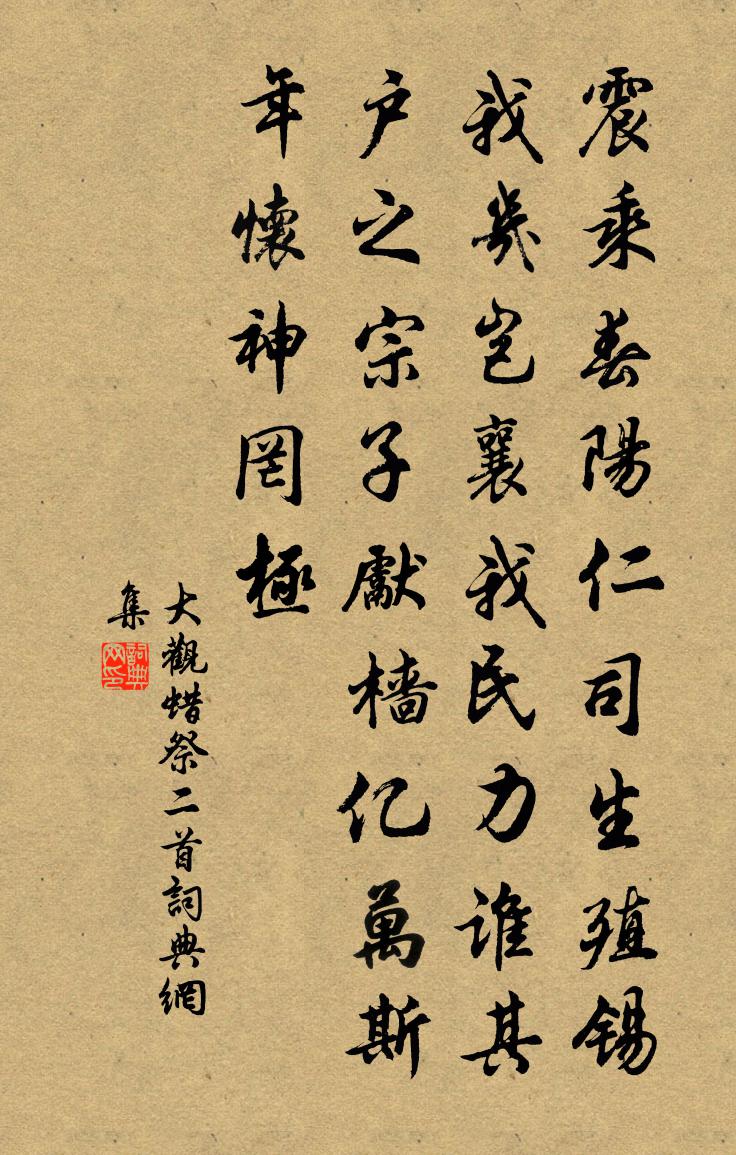 震乘春陽仁司生殖錫
我幾岂襄我民力誰其
户之宗子獻檣亿萬斯
年懷神罔極
大觀蜡祭二首詞典網
集
詞典网印